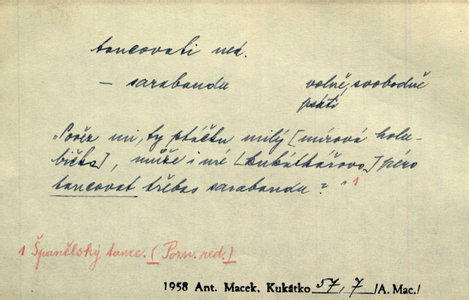 tancovati ned.
– sarabandu volně, svobodně
psáti
„Pověz mi, ty ptáčku milý [mírová holu-
bičko], může i mé [kukátkářovo] péro
tancovat třebas sarabandu?" 1
1 Španělský tanec. (Pozn. red.)
1958 Ant. Macek, Kukátko 57, 7 /A. Mac./